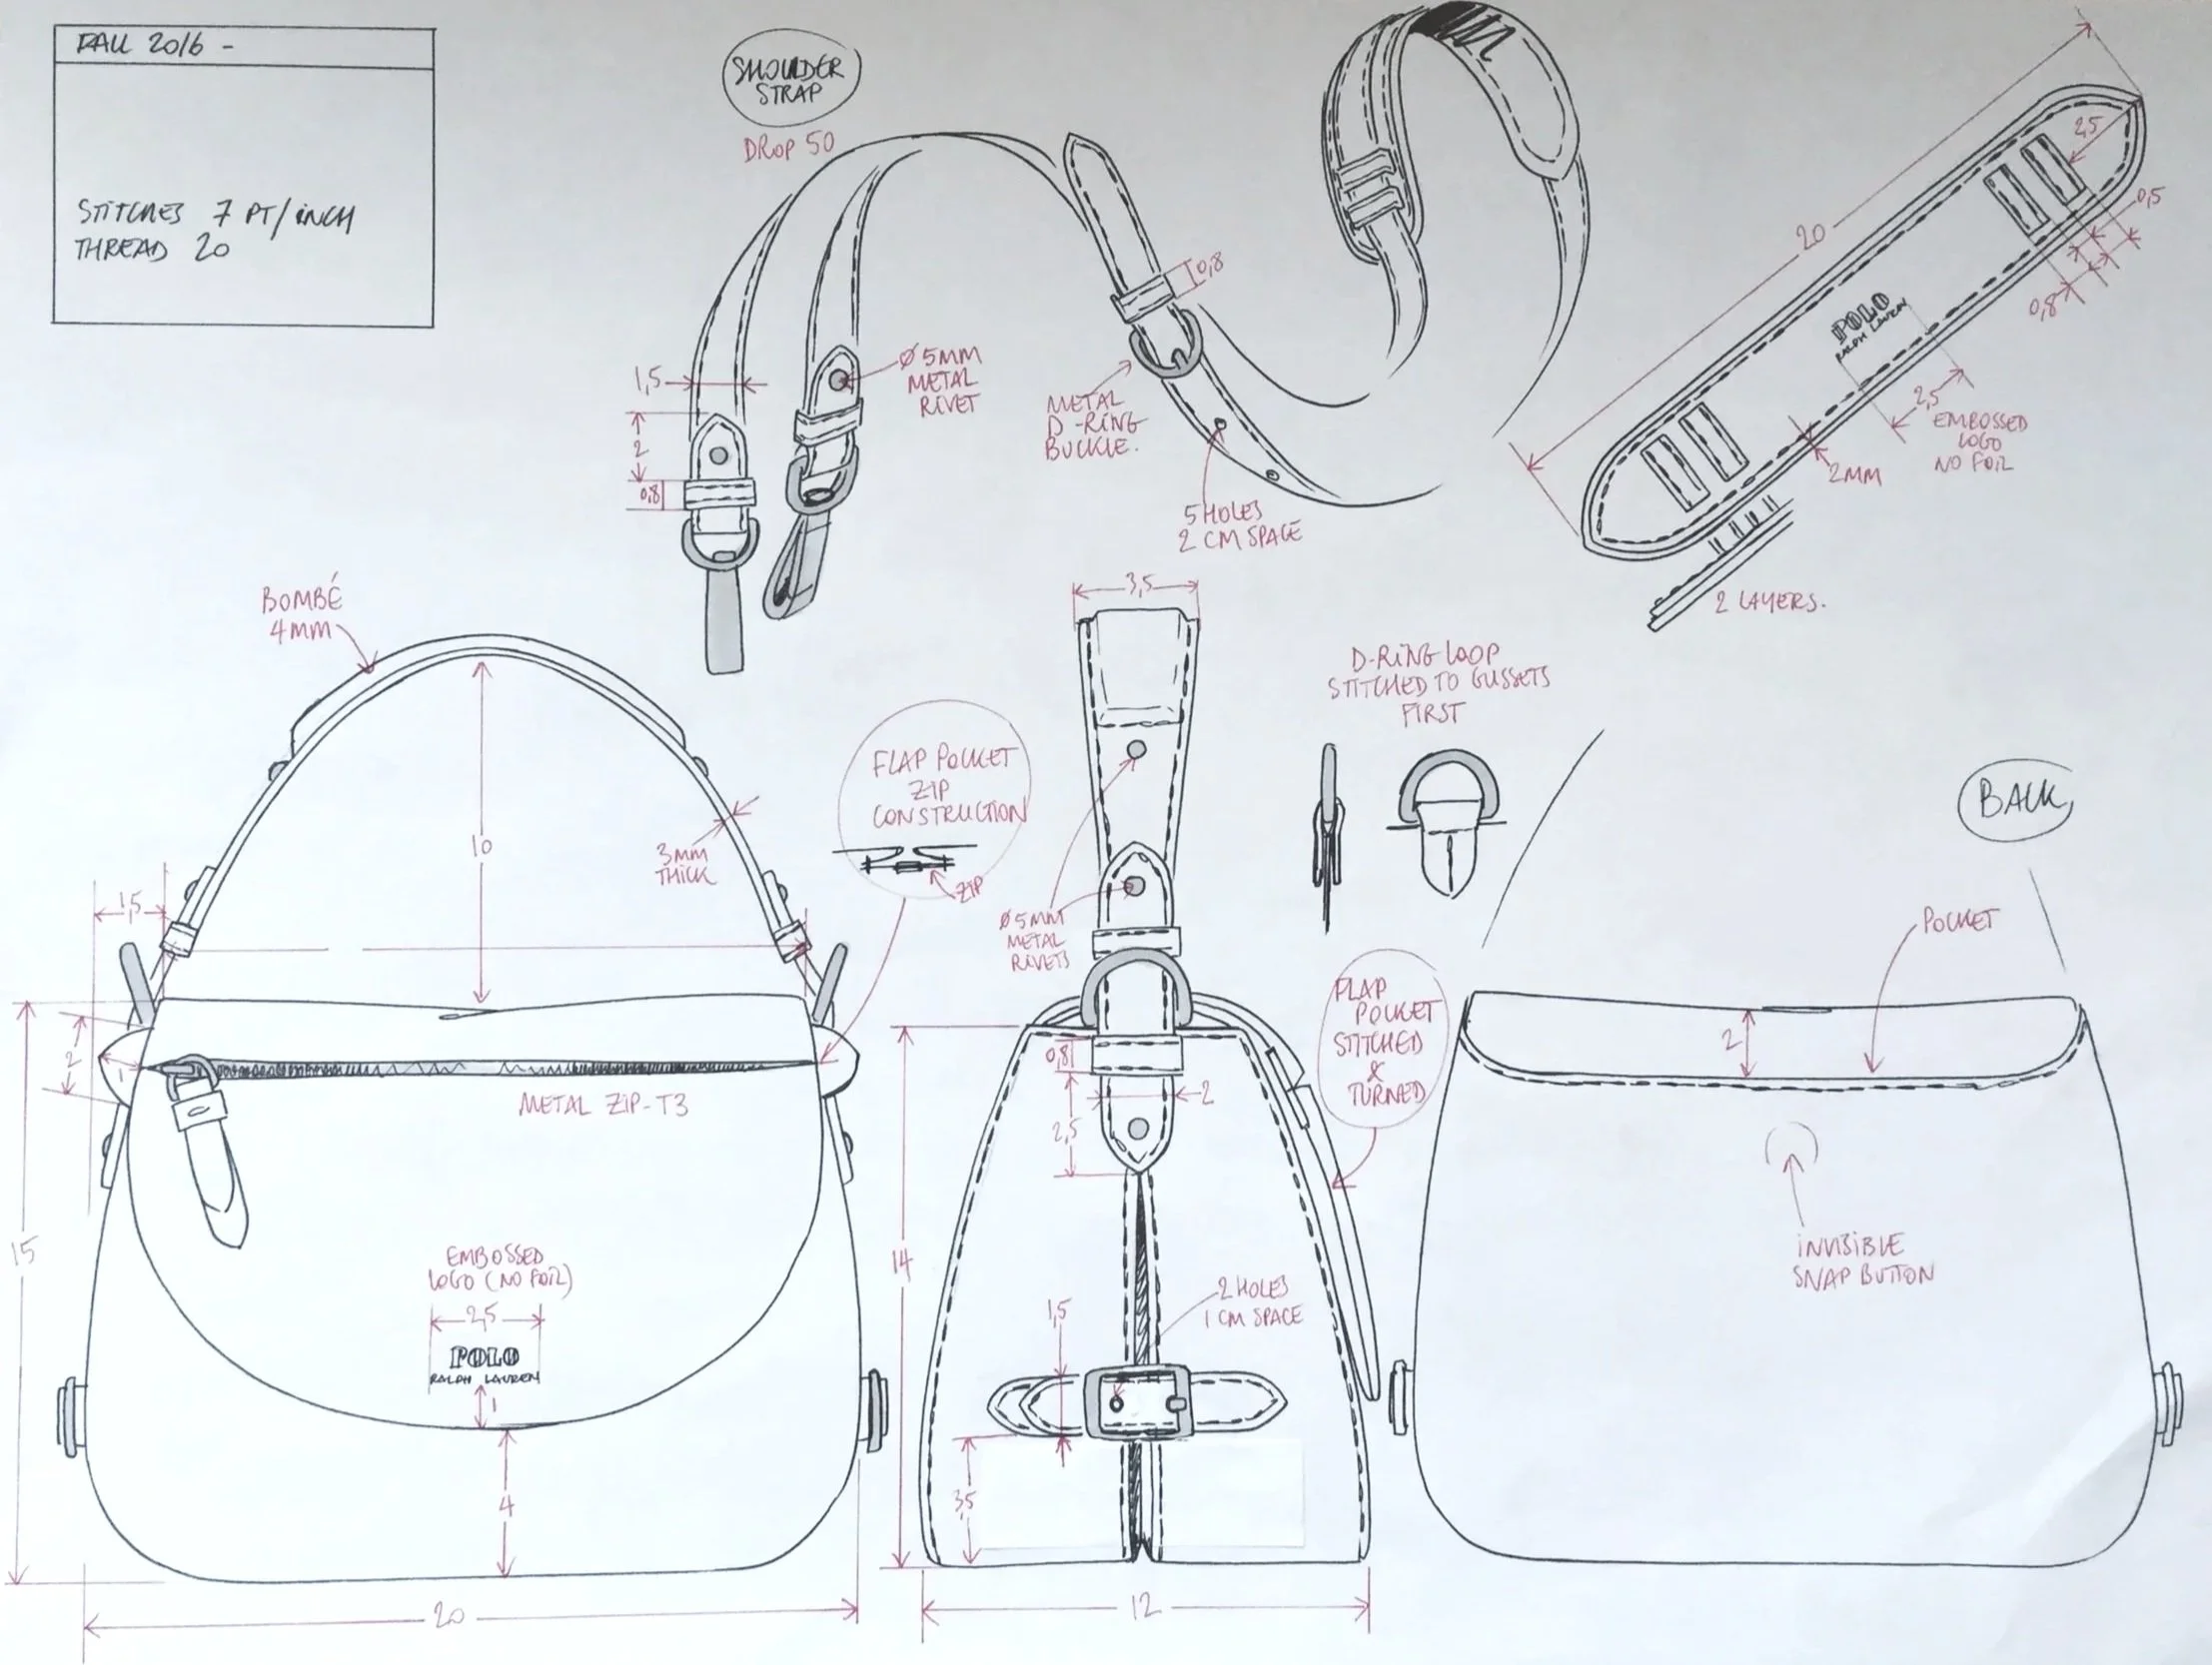 FALL 2016 -
STITCHES 7 PT/INCH
THREAD 20
SHOULDER
STRAP
DROP 50
1,5
2
0,8
Ø 5MM
METAL
RIVET
METAL
D-RING
BUCKLE.
0,8
5 HOLES
2 CM SPACE
20
2,5
0,5
0,8
POLO
RALPH LAUREN
2,5
EMBOSSED
LOGO
NO FOIL
2MM
2 LAYERS.
BOMBÉ
4MM
10
3MM
THICK
1,5
FLAP POCKET
ZIP
CONSTRUCTION
ZIP
15
2
1
METAL ZIP-T3
EMBOSSED
LOGO (NO FOIL)
2,5
POLO
RALPH LAUREN
1
4
20
3,5
D-RING LOOP
STITCHED TO GUSSETS
FIRST
Ø 5MM
METAL
RIVETS
FLAP
POCKET
STITCHED
&
TURNED
0,8
2
2,5
14
2 HOLES
1 CM SPACE
1,5
3,5
12
BACK
POCKET
2
INVISIBLE
SNAP BUTTON